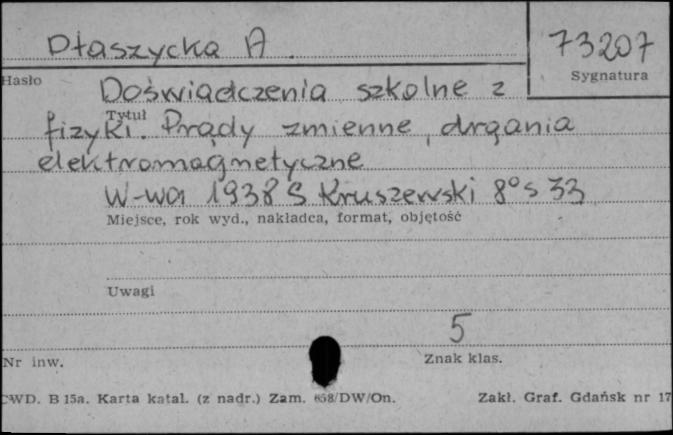 Dłaszycka A.
73207
Hasło
Sygnatura
Doświadczenia szkolne z
Tytuł
fizyki. Prądy zmienne, drgania
elektromagnetyczne
W-wa 1938 S Kruszewski 8° s 33
Miejsce, rok wyd., nakładca, format, objętość
Uwagi
5
Nr inw.
Znak klas.
CWD. B 15a. Karta katal. (z nadr.) Zam. 658/DW/On.
Zakł. Graf. Gdańsk nr 17